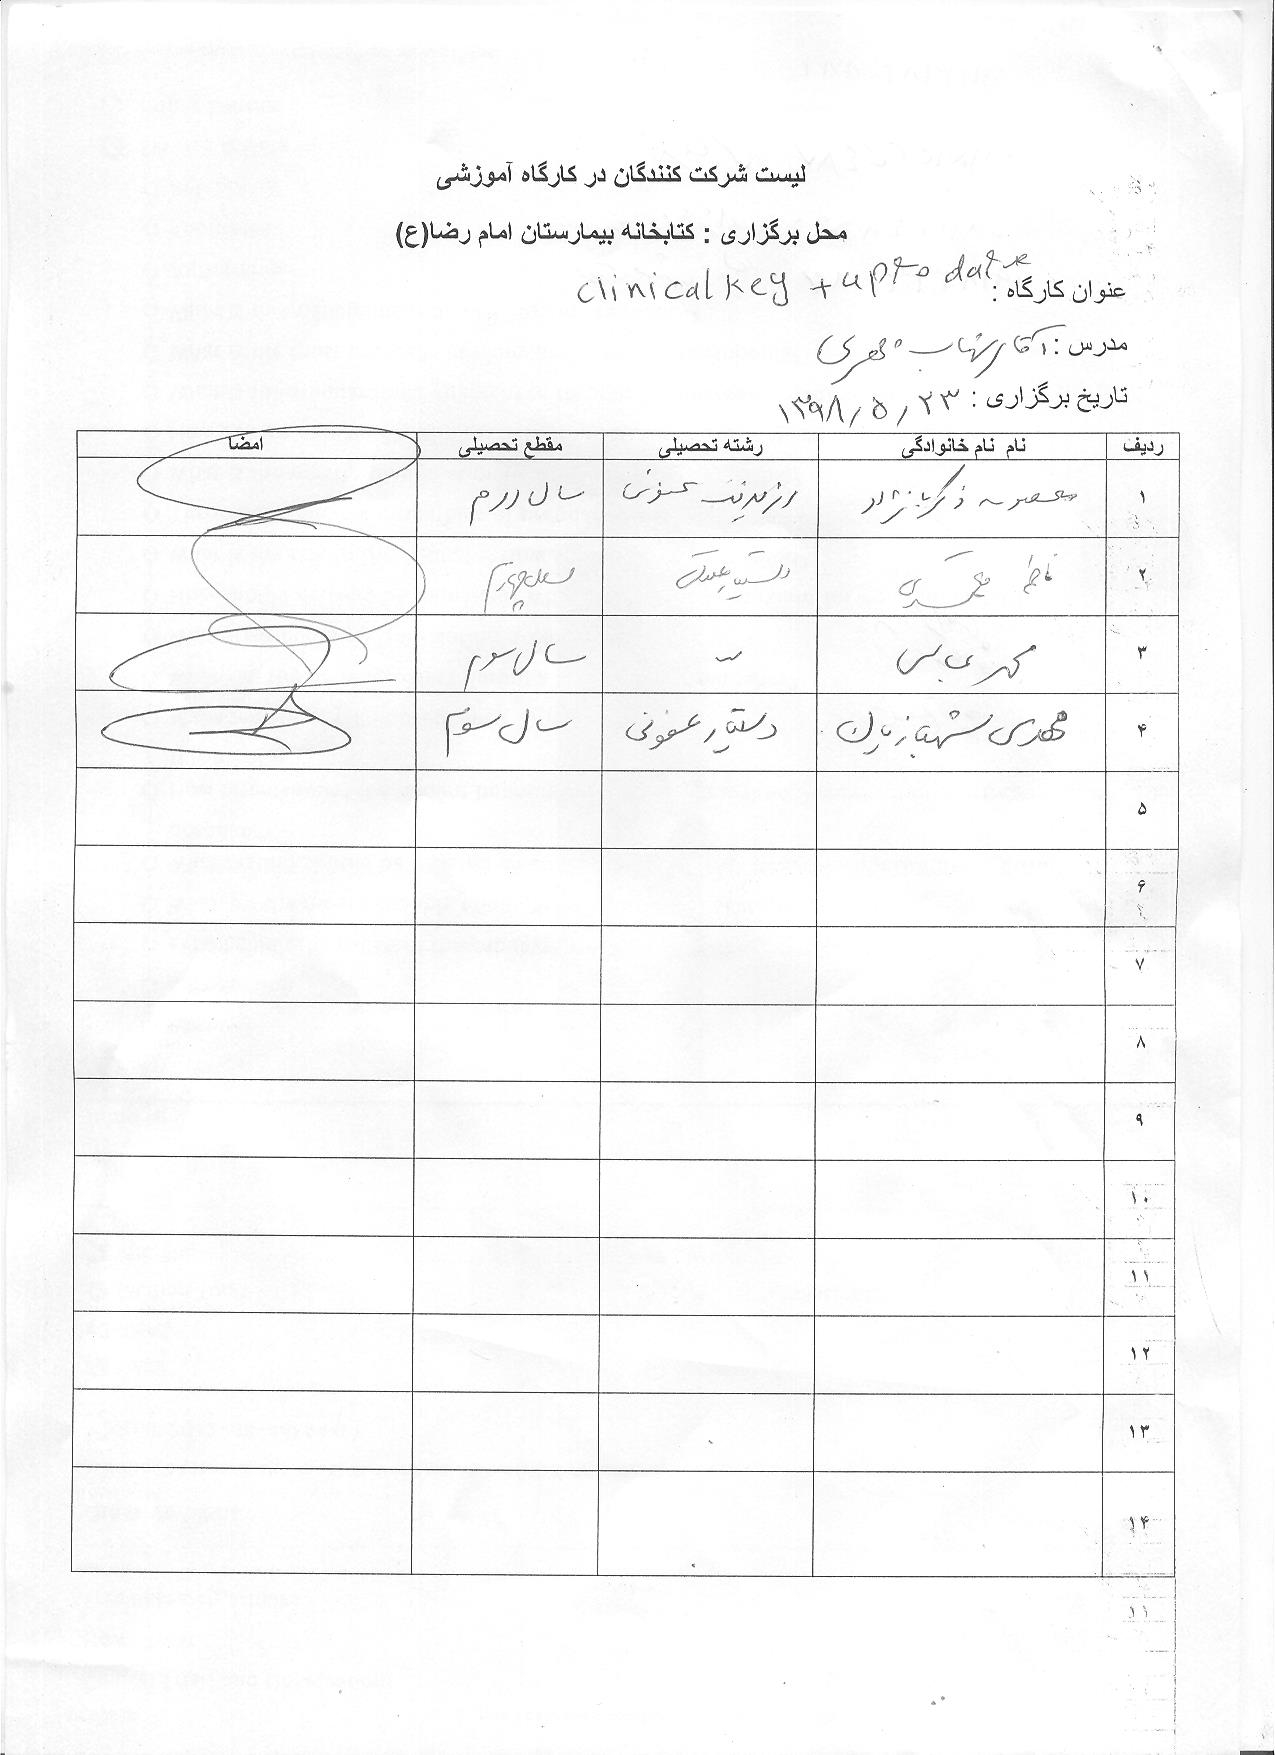 لیست شرکت کنندگان در کارگاه آموزشی
محل برگزاری : کتابخانه بیمارستان امام رضا(ع)
عنوان کارگاه : clinical key + up to date
مدرس : آقای شهاب مهری
تاریخ برگزاری : ۱۳۹۸/۵/۲۳
ردیف نام نام خانوادگی رشته تحصیلی مقطع تحصیلی امضا
۱ معصومه ذکریانژاد رزیدنت عفونی سال دوم
۲ فاطمه دستیار عفونی سال چهارم
۳ سال سوم
۴ مهدی شهبازیان دستیار عفونی سال سوم
۵
۶
۷
۸
۹
۱۰
۱۱
۱۲
۱۳
۱۴